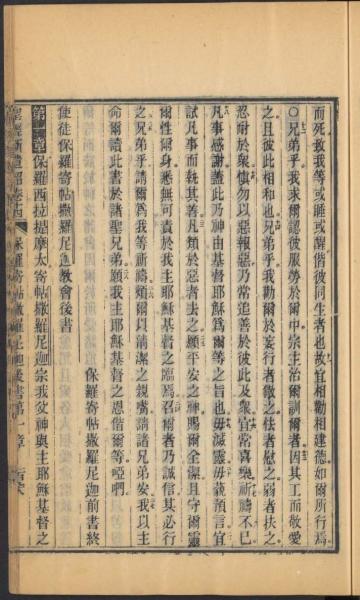 而死救我等或睡或醒偕彼同生者也故宜相勸相建德如爾所行焉
○兄弟乎我求爾認彼服勞於爾中宗主治爾訓爾者因其工而敬愛
之且彼此相和也兄弟乎我勸爾於妄行者儆之怯者慰之弱者扶之
忍耐於衆愼勿以惡報惡乃常追善於彼此及衆宜常喜樂祈禱不已
凡事感謝蓋此乃神由基督耶穌爲爾等之旨也毋滅靈毋藐預言宜
試凡事而執其善凡類於惡者去之願平安之神賜爾全潔且守爾靈
爾性爾身悉無可責於我主耶穌基督之臨焉召爾者乃誠信其必行
之兄弟乎請爾爲我等祈禱爾以清潔之親嘴請諸兄弟安我以主
命爾讀此書於諸聖兄弟願我主耶穌基督之恩偕爾等啞們
保羅寄帖撒羅尼迦前書終
使徒保羅寄帖撒羅尼迦教會後書
第一章保羅西拉提摩太寄帖撒羅尼迦宗我父神與主耶穌基督之
聖經新遺詔卷十四 保羅寄帖撒羅尼迦後書第一章